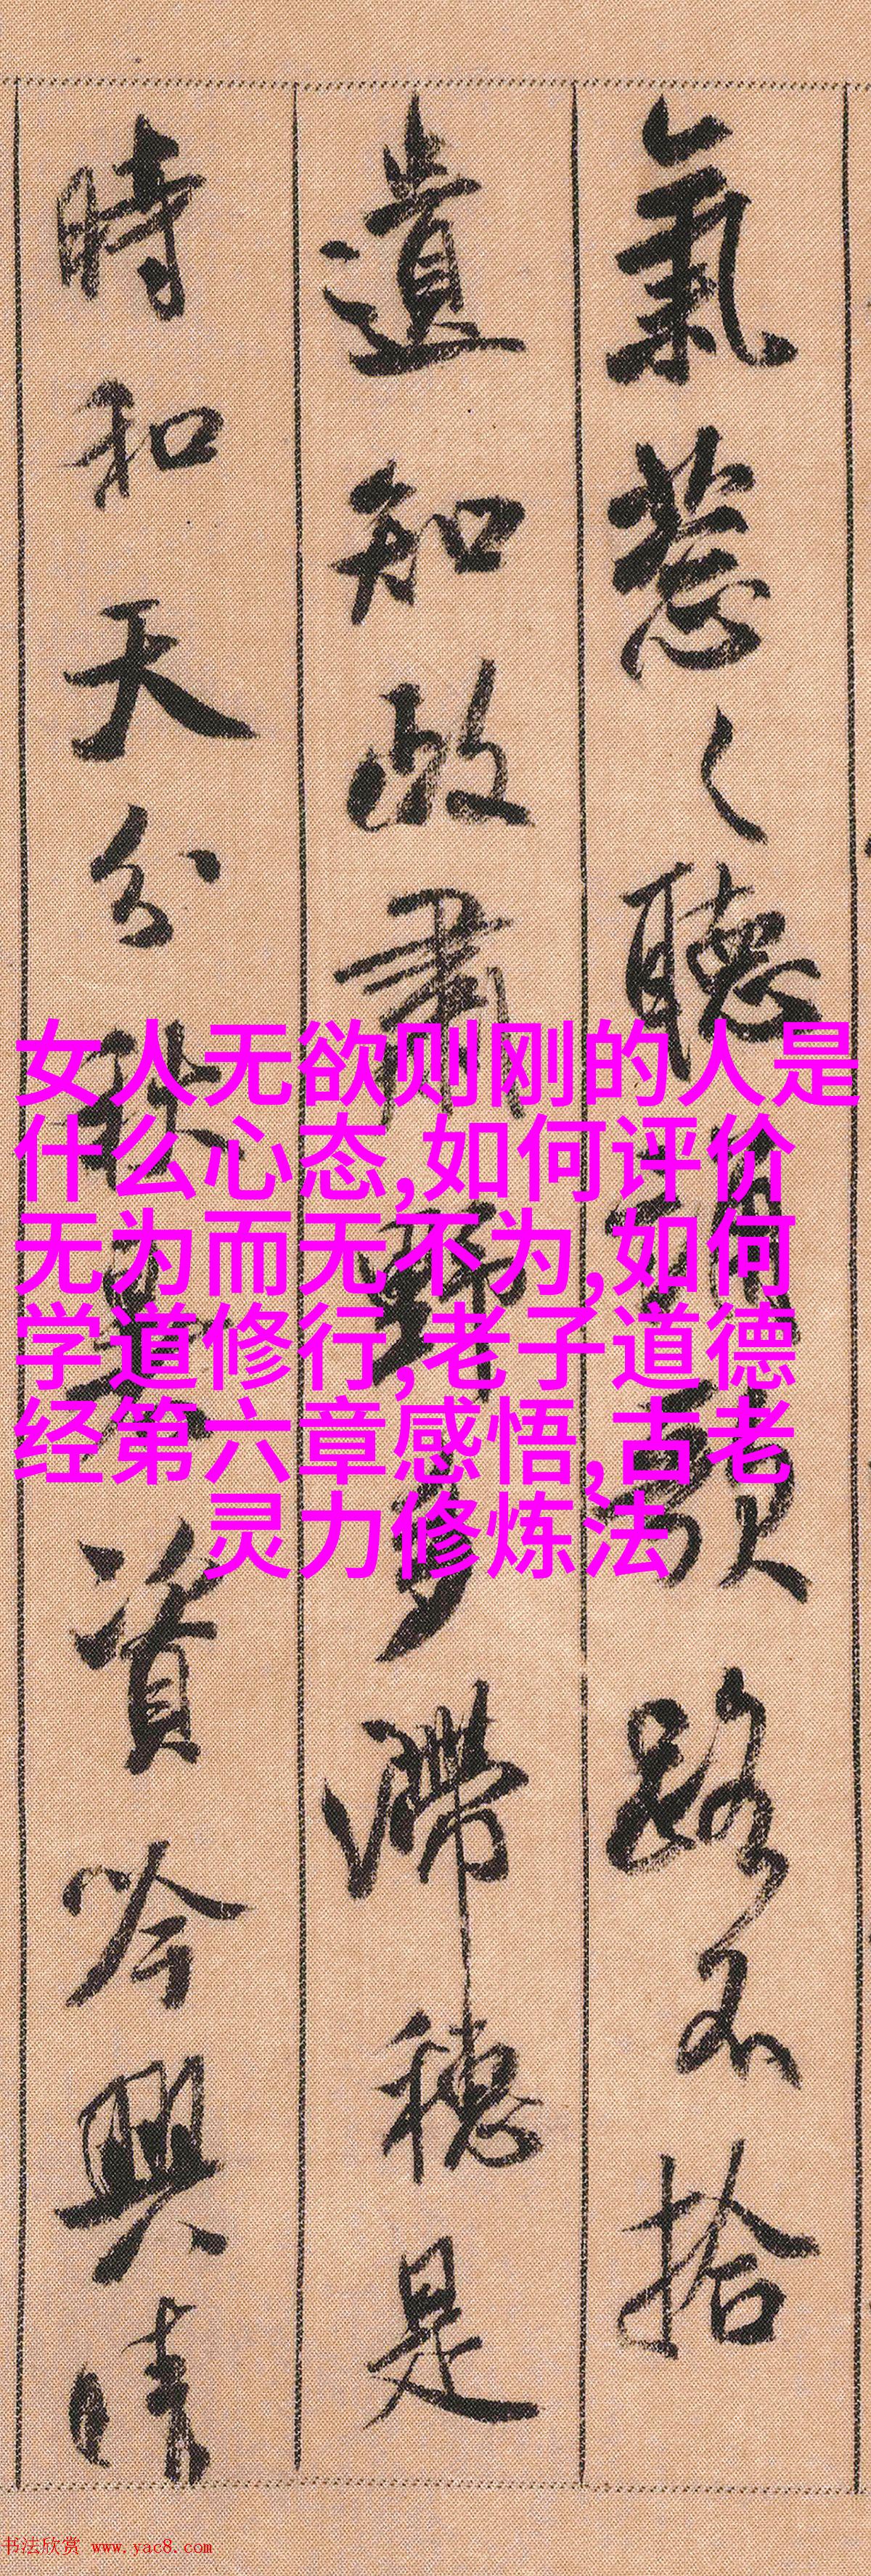 氣蔥〻聽誦歌路不拾
遺知政肅野多滯穗是
時和天分秋暑資吟興晴
女人无欲则刚的人是
什么心态,如何评价
无为而无不为,如何
学道修行,老子道德
经第六章感悟,古老
灵力修炼法
书法欣赏 www.yac8.com